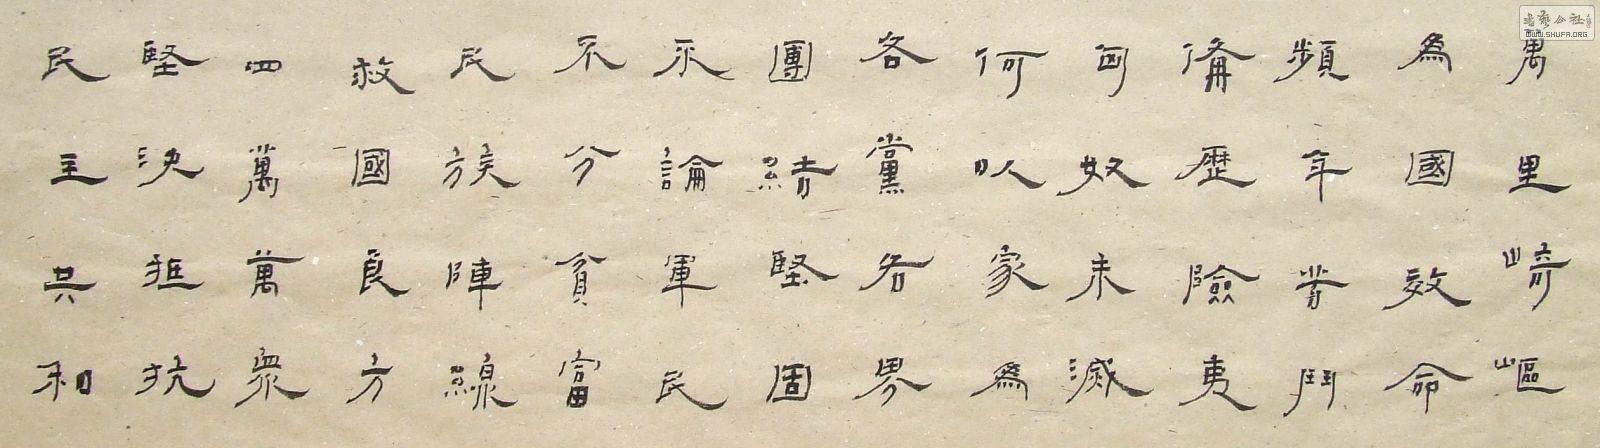 萬里崎嶇
為國效命
頻年苦鬥
備歷險夷
匈奴未滅
何以家為
各黨各界
團結堅固
不論軍民
不分貧富
民族陣線
救國良方
四萬萬眾
堅決抵抗
民主共和
書藝公社
WWW.SHUFA.ORG